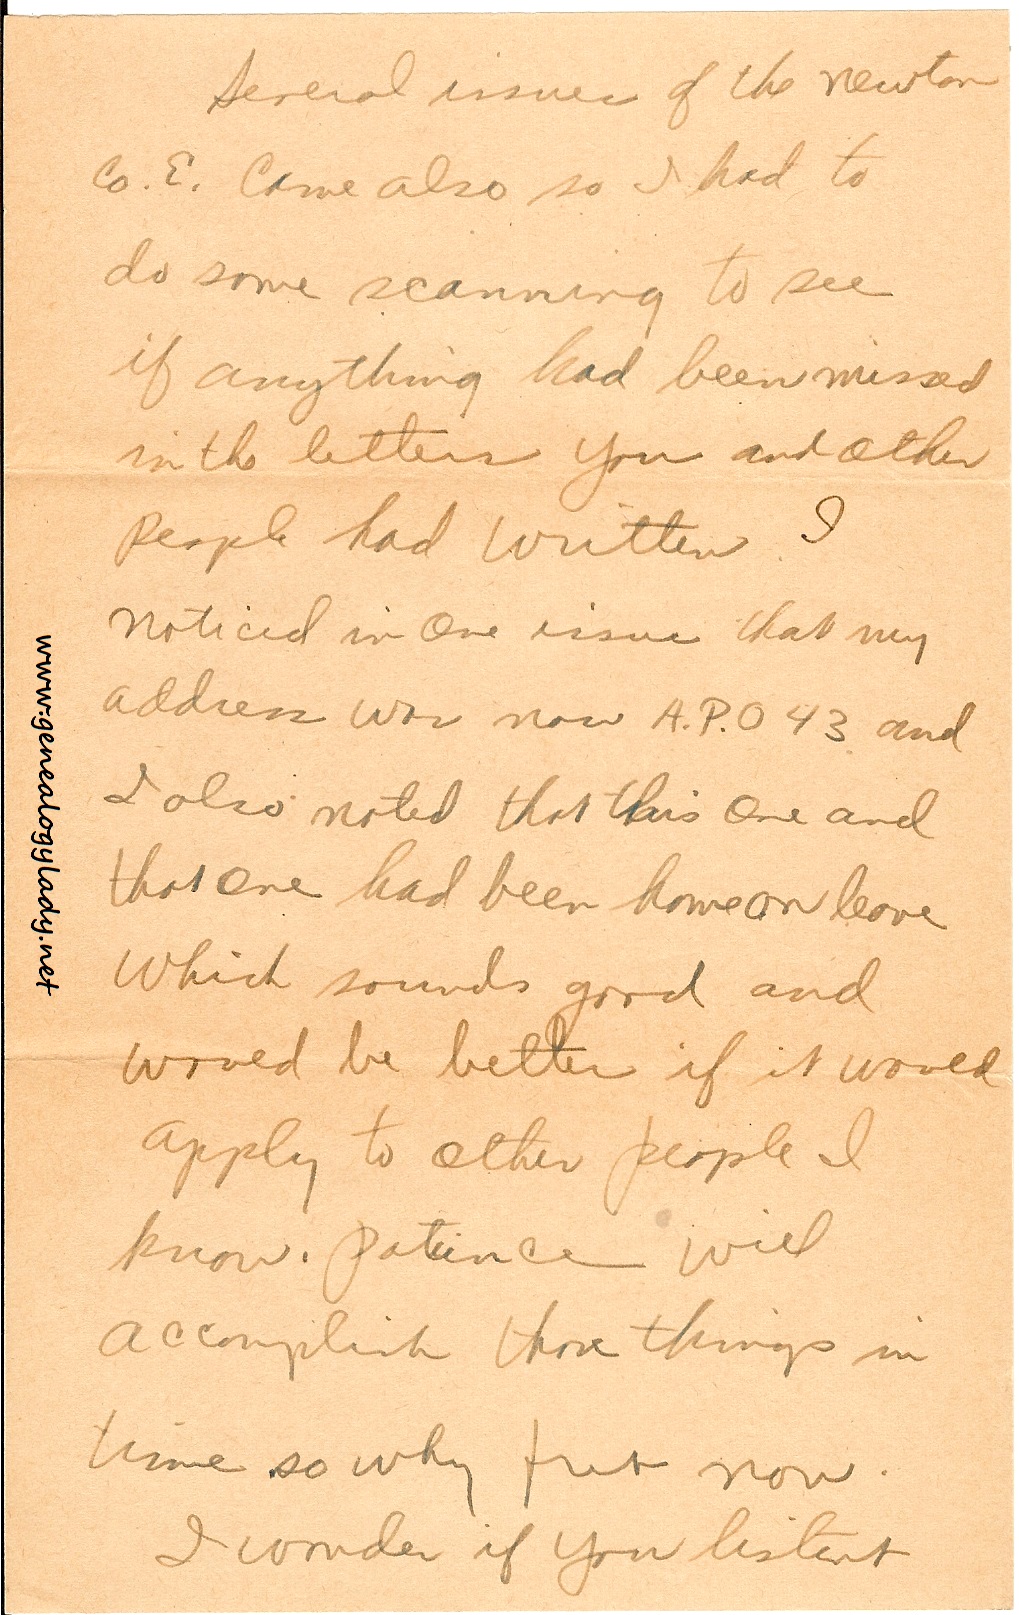 Several issues of the Newton
Co. E. Came also so I had to
do some scanning to see
if anything had been missed
in the letters you and other
People had written. I
noticed in one issue that my
address was now A.P.O 43 and
I also noted that this one and
that one had been home on leave
which sounds good and
would be better if it would
apply to other people I
know. Patience will
accomplish those things in
time so why fret now.
I wonder if you listent
www.genealogylady.net